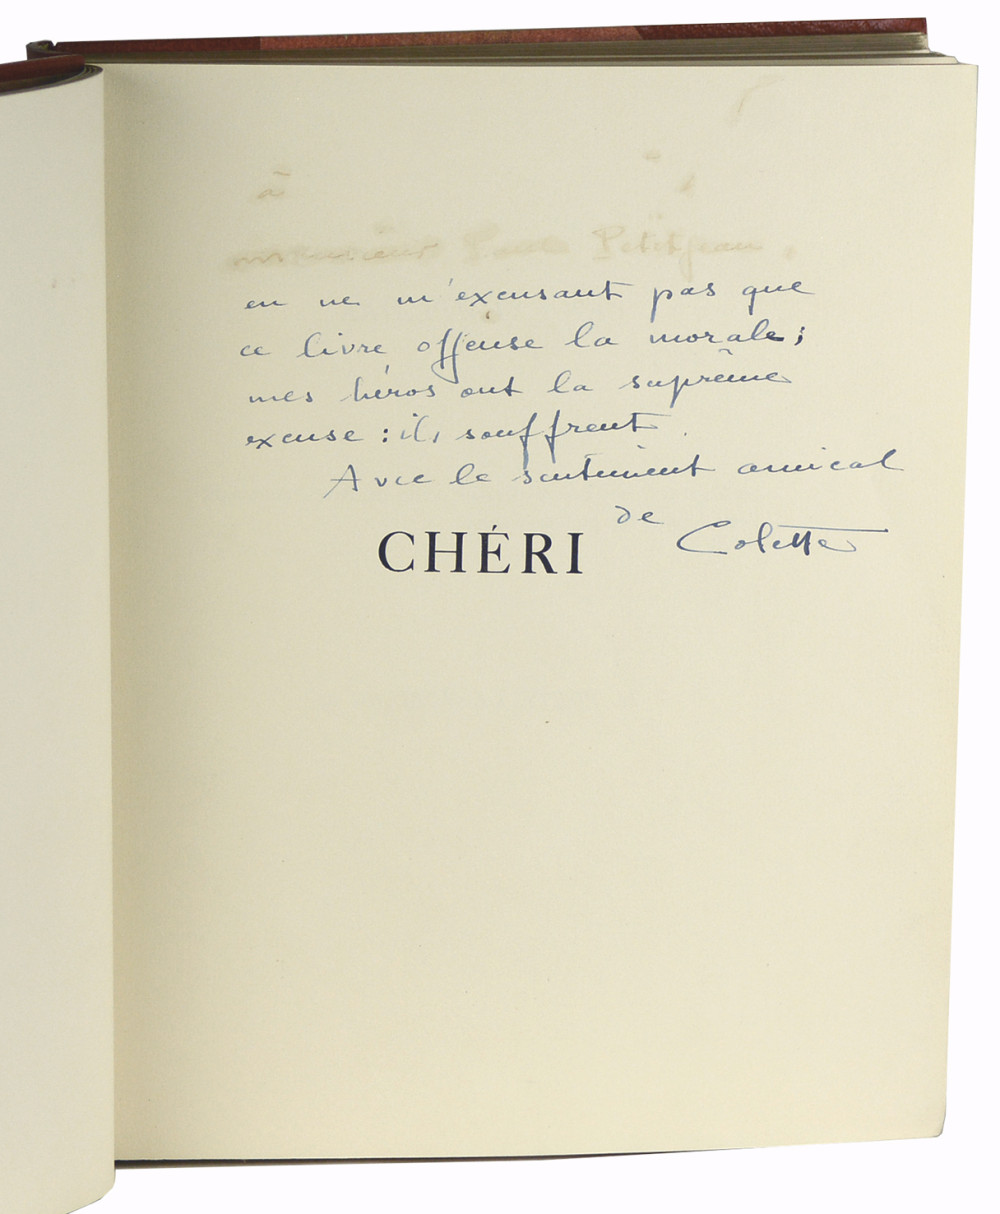 à
monsieur Paul Petitjean,
en ne m'excusant pas que
ce livre offense la morale ;
mes héros ont la suprême
excuse : ils souffrent.
Avec le sentiment amical
de Colette
CHÉRI